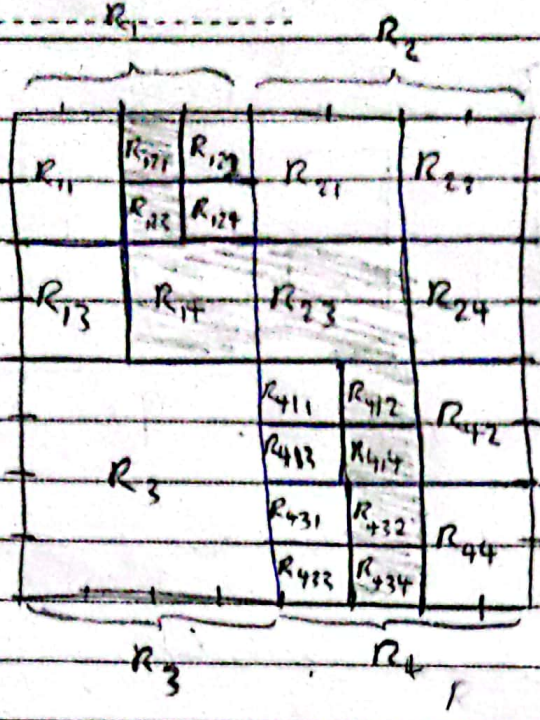 R1
R2
R11
R121
R122
R21
R22
R123
R124
R13
R14
R23
R24
R411
R412
R42
R413
R414
R3
R431
R432
R44
R433
R434
R3
R4